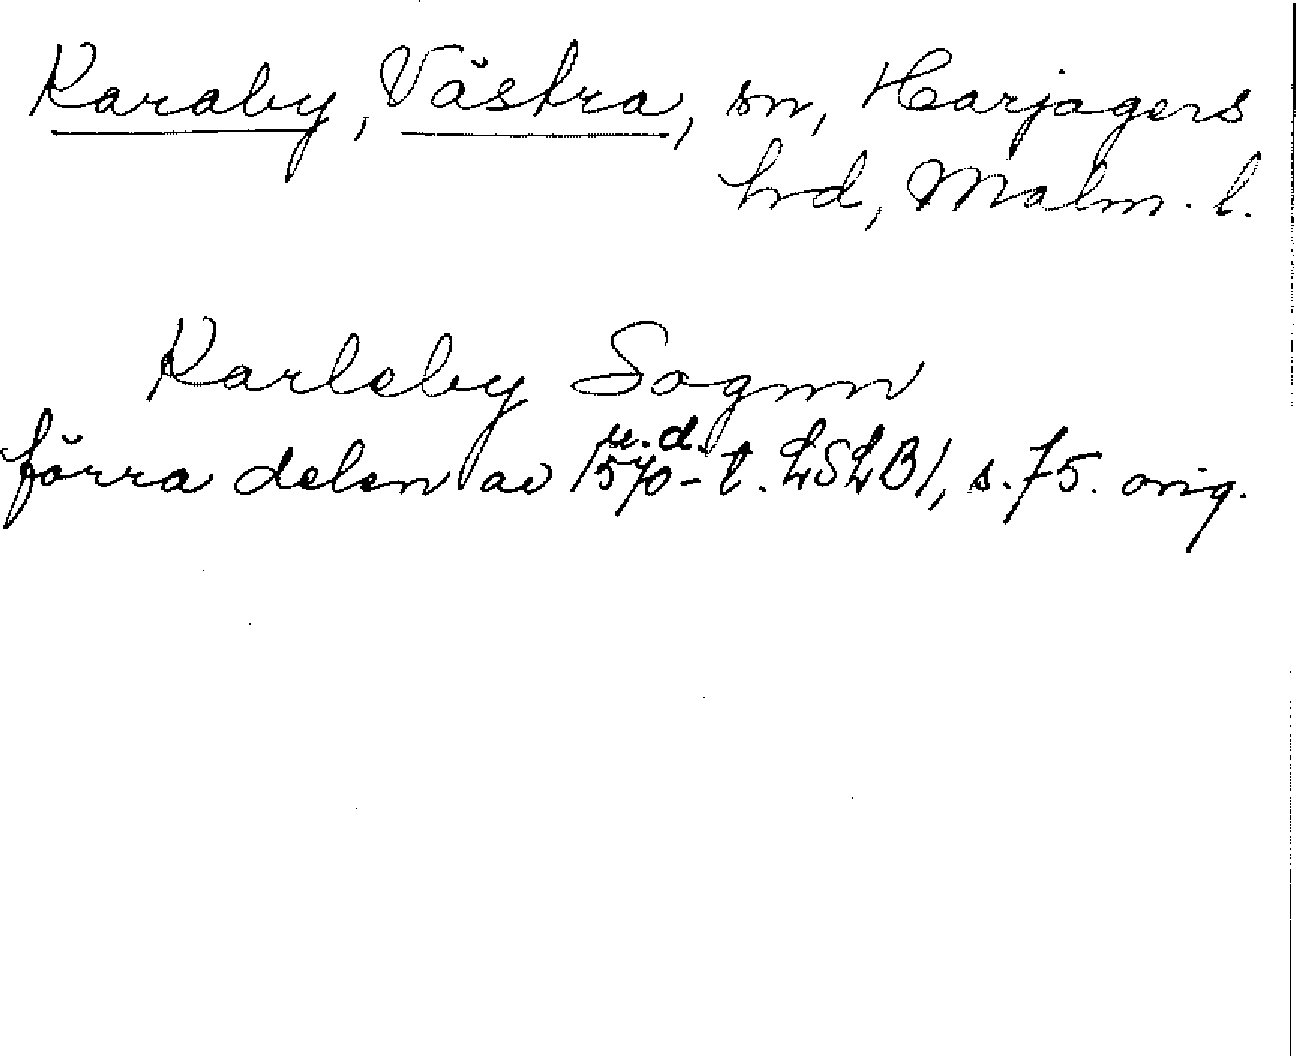 Karaby, Västra, sn, Harjagers
hrd, Malm. l.
Karleby Sognn
u. d.
förra delen av 1570-t. LSLB1, s. 75. orig.